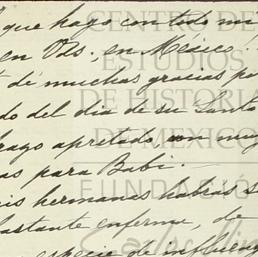 que hago con todo mi
en Vds., en México!
dé muchas gracias po
do del dia de su Santo
apretado, con muy
as para Babi.
is hermanas habrás s
bastante enferma, de
especie de influen
CENTRO DE
ESTUDIOS
DE HISTORIA
DE MEXICO
FUNDACIÓN
Carlos Slim